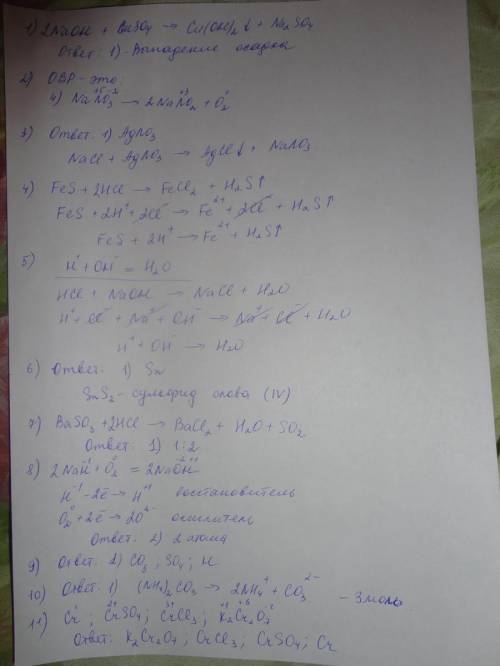 1) 2NaOH + CuSO4 → Cu(OH)2↓ + Na2SO4
Ответ: 1) - Выпадение осадка
2) ОВР - это:
4) NaN⁺⁵O₃⁻² → 2NaN⁺³O2 + O2⁰
3) Ответ: 1) AgNO3
NaCl + AgNO3 → AgCl↓ + NaNO3
4) FeS + 2HCl → FeCl2 + H2S↑
FeS + 2H⁺ + 2Cl⁻ → Fe²⁺ + 2Cl⁻ + H2S↑
FeS + 2H⁺ → Fe²⁺ + H2S↑
5) H⁺ + OH⁻ = H2O
HCl + NaOH → NaCl + H2O
H⁺ + Cl⁻ + Na⁺ + OH⁻ → Na⁺ + Cl⁻ + H2O
H⁺ + OH⁻ → H2O
6) Ответ: 1) Sn
SnS2 - сульфид олова (IV)
7) BaSO3 + 2HCl → BaCl2 + H2O + SO2
Ответ: 1) 1:2
8) 2NaH⁻¹ + O2⁰ = 2NaO⁻²H⁺¹
H⁻¹ - 2ē → H⁺¹ восстановитель
O2⁰ + 2ē → 2O²⁻ окислитель
Ответ: 2) 2 атома
9) Ответ: 2) CO3; SO4; H
10) Ответ: 1) (NH4)2CO3 → 2NH4⁺ + CO3²⁻ - 3 моль
11) Cr⁰; Cr²⁺SO4; Cr³⁺Cl3; K2⁺¹Cr2⁺⁶O7⁻²
Ответ: K2Cr2O7; CrCl3; CrSO4; Cr